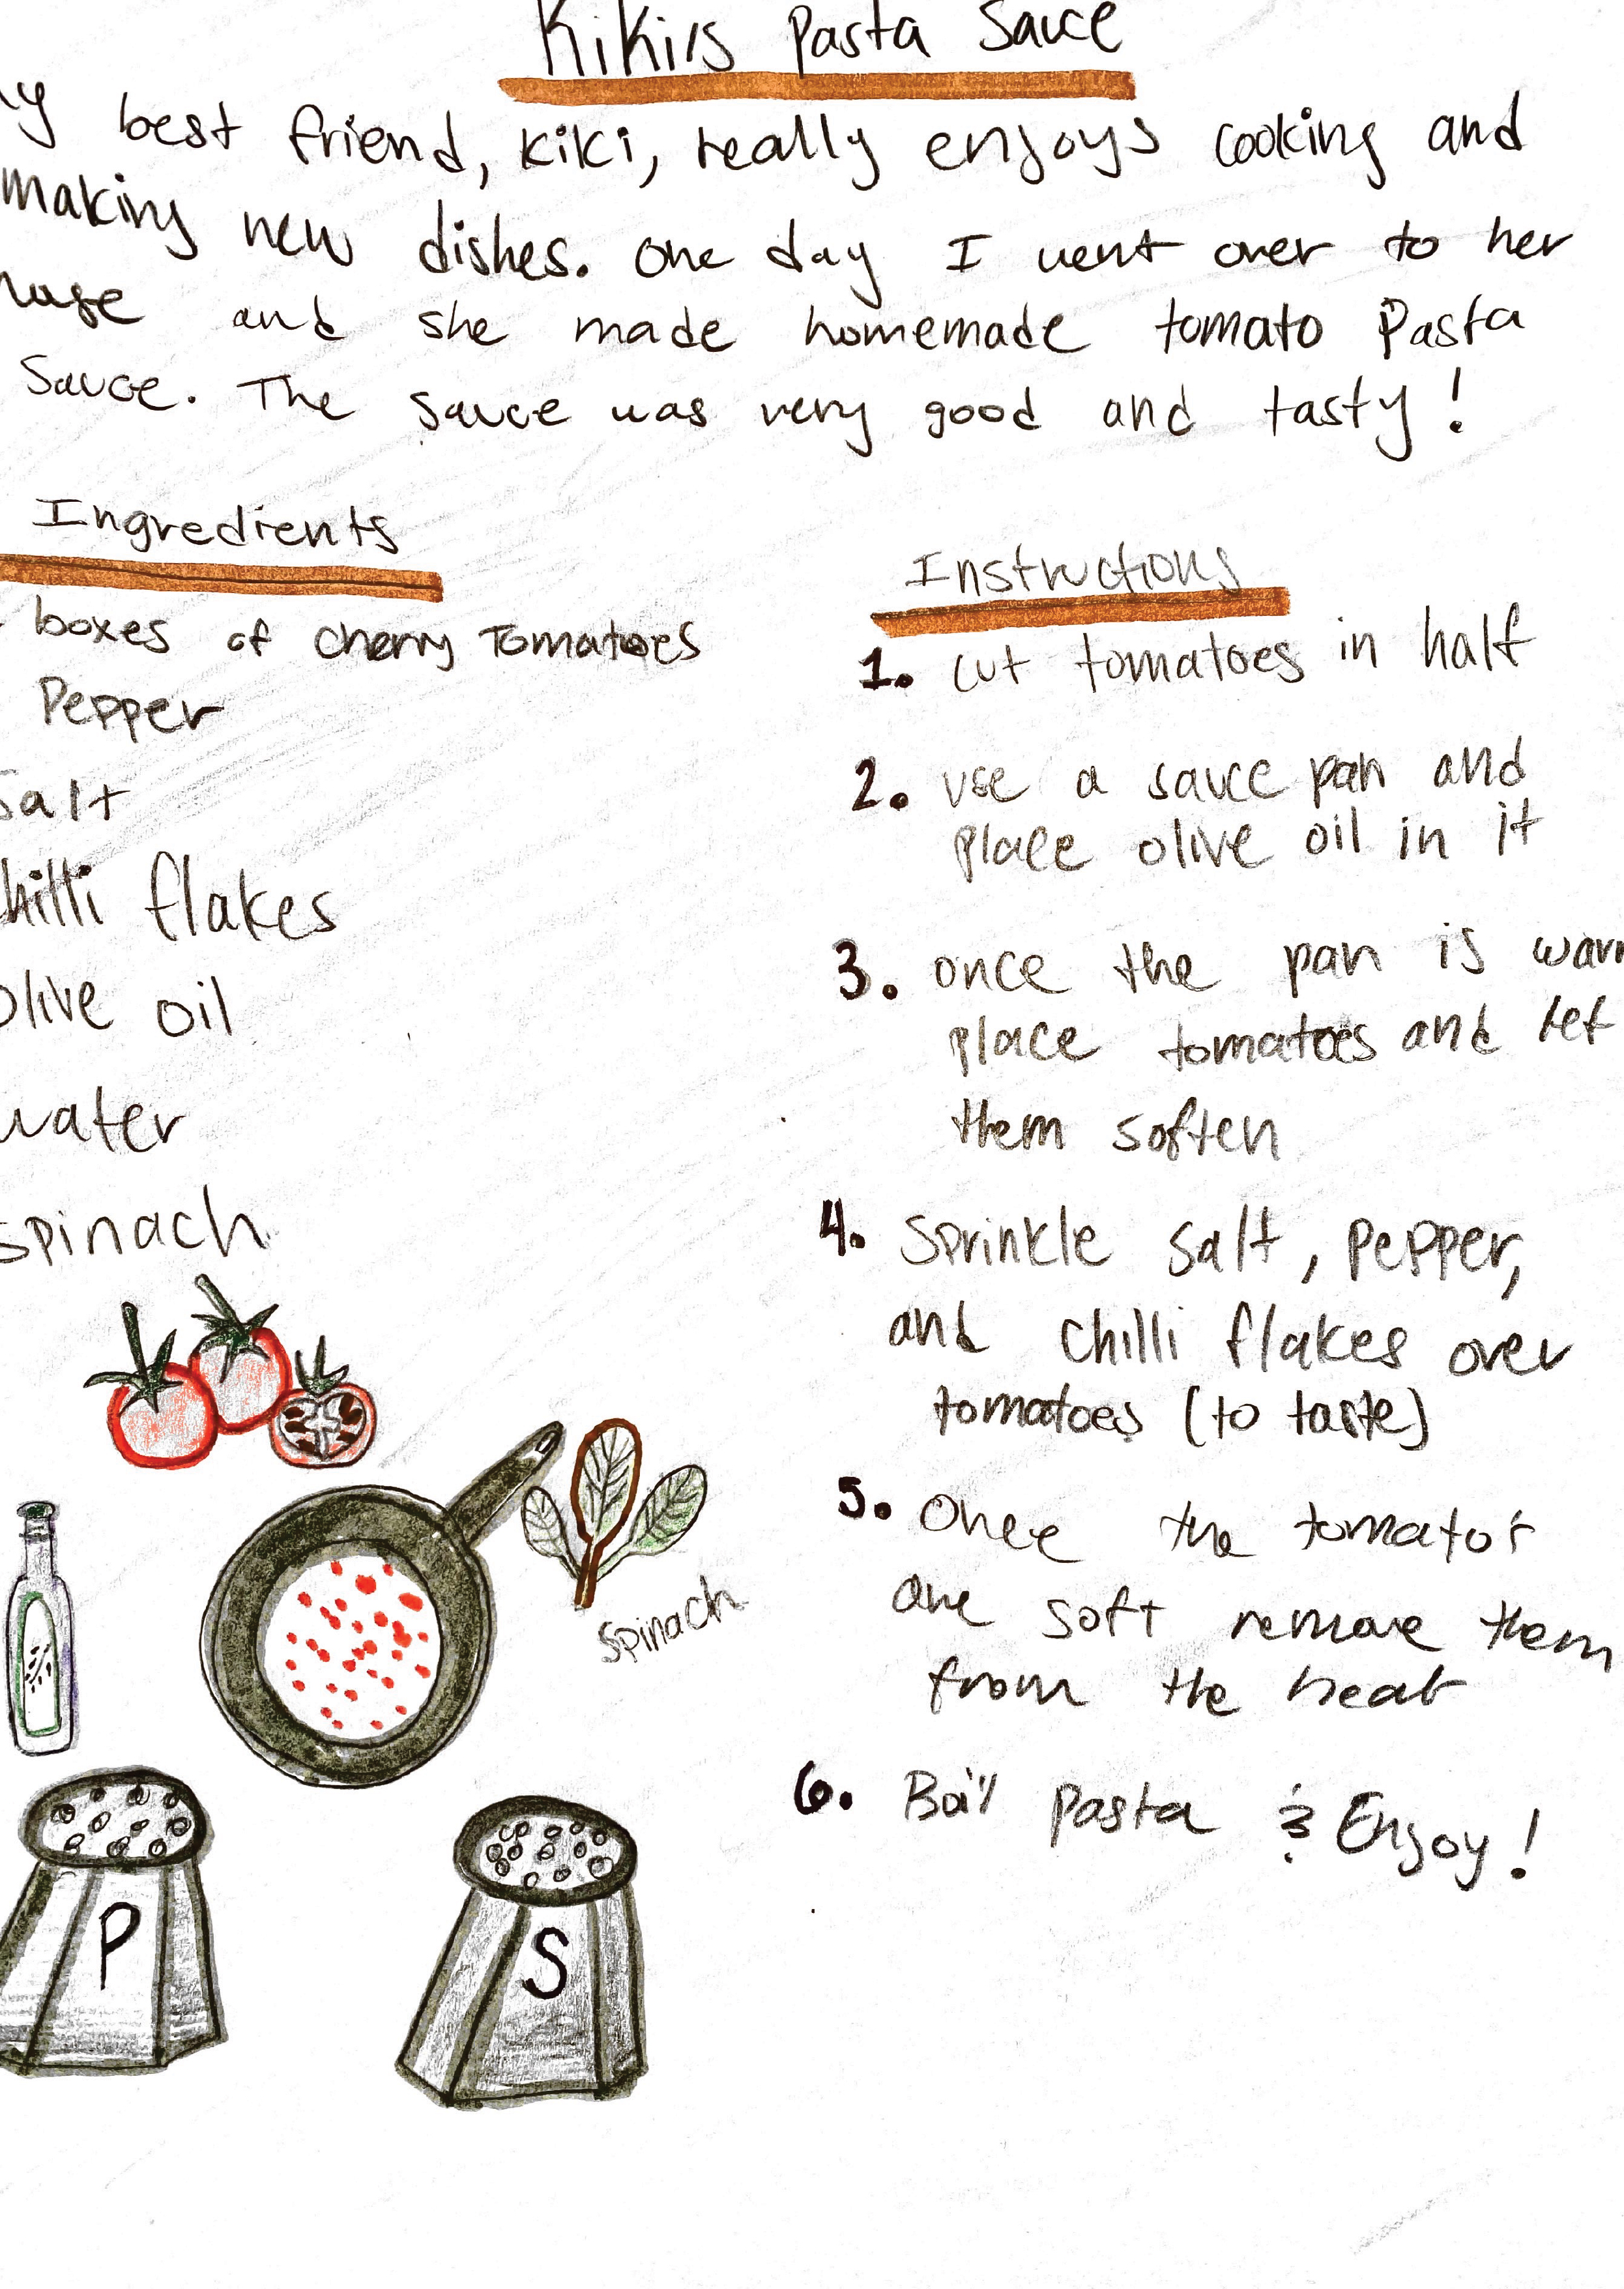 Kiki's Pasta Sauce
best friend, Kiki, really enjoys cooking and
making new dishes. One day I went over to her
and she made homemade tomato Pasta
Sauce. The sauce was very good and tasty!
Ingredients
boxes of cherry Tomatoes
Pepper
Salt
chilli flakes
Olive oil
water
spinach
spinach
P
S
Instructions
1. cut tomatoes in half
2. use a sauce pan and
place olive oil in it
3. once the pan is
place tomatoes and let
them soften
4. Sprinkle salt, pepper,
and chilli flakes over
tomatoes (to taste)
5. Once the
are soft remove them
from the heat
6. Boil pasta & Enjoy!